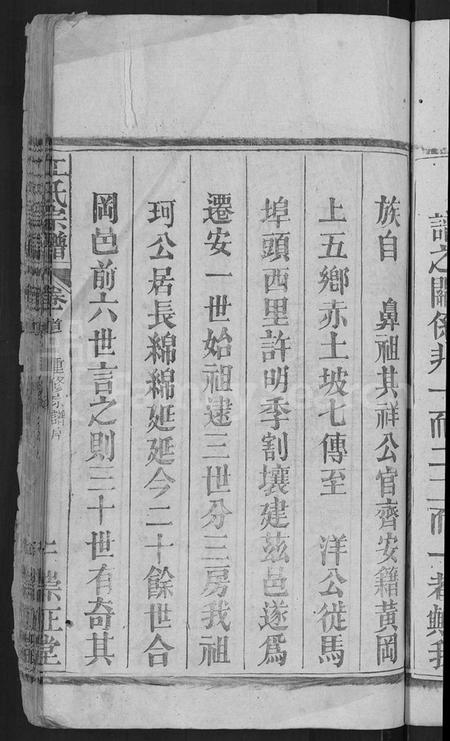 譜之關係非一而二二而一者與我
族自 鼻祖其祥公官齊安籍黃岡
上五鄉赤土坡七傳至 洋公徙馬
埠頭西里許明季割壤建茲邑遂爲
遷安一世始祖逮三世分三房我祖
珂公居長綿綿延延今二十餘世合
岡邑前六世言之則三十世有奇其
氏宗譜 卷首 重修宗譜序 崇正堂